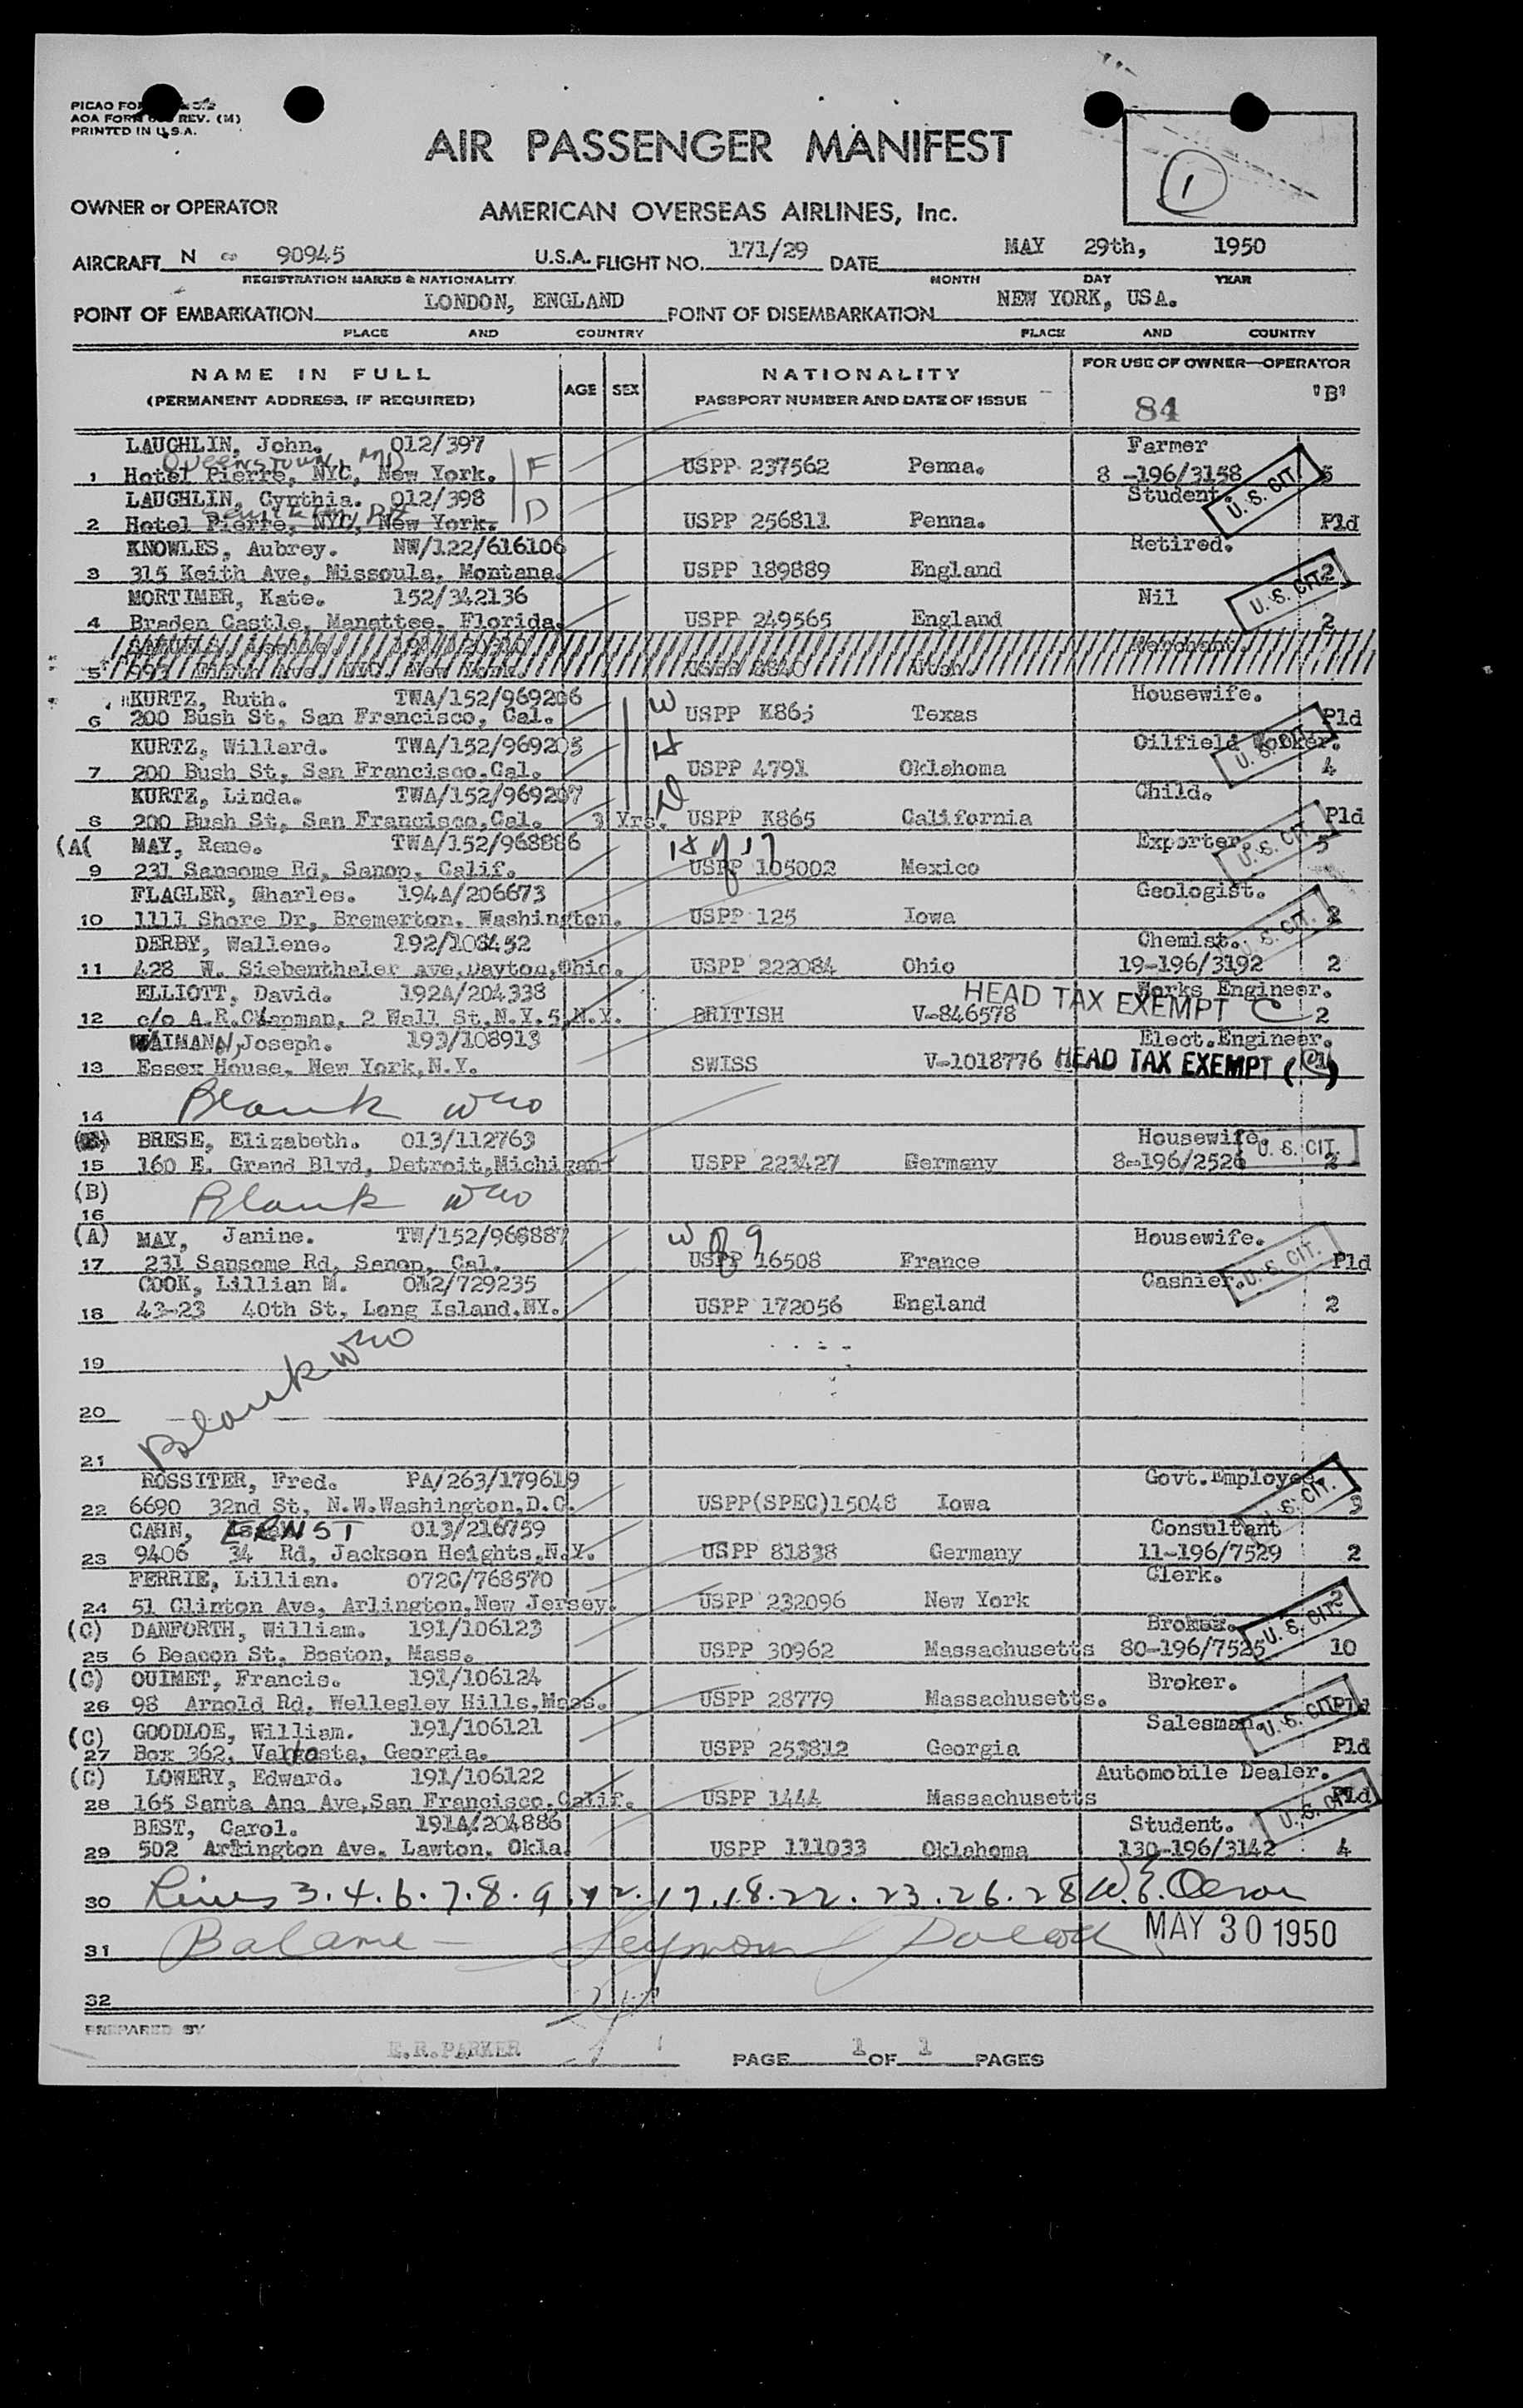 PRINTED IN U.S.A.
AIR PASSENGER MANIFEST
1
OWNER or OPERATOR
AMERICAN OVERSEAS AIRLINES, Inc.
AIRCRAFT N 90945 U.S.A. FLIGHT NO. 171/29 DATE MAY 29th, 1950
REGISTRATION MARKS & NATIONALITY MONTH DAY YEAR
POINT OF EMBARKATION LONDON, ENGLAND POINT OF DISEMBARKATION NEW YORK, USA.
PLACE AND COUNTRY PLACE AND COUNTRY
NAME IN FULL AGE SEX NATIONALITY FOR USE OF OWNER—OPERATOR
(PERMANENT ADDRESS, IF REQUIRED) PASSPORT NUMBER AND DATE OF ISSUE 84 "B"
LAUGHLIN, John. 012/397 Farmer
QUEENSTOWN, MD
1 Hotel Pierre, NYC, New York. F USPP 237562 Penna. 8 -196/3158 5
LAUGHLIN, Cynthia. 012/398 Student. U. S. CIT.
2 Hotel Pierre, NYC, New York. D USPP 256811 Penna. Pld
KNOWLES, Aubrey. NW/122/616106 Retired.
3 315 Keith Ave, Missoula, Montana. USPP 189889 England 2
MORTIMER, Kate. 152/342136 Nil U. S. CIT.
4 Braden Castle, Manattee, Florida. USPP 249565 England 2
5
KURTZ, Ruth. TWA/152/969206 Housewife.
6 200 Bush St, San Francisco, Cal. W USPP K865 Texas Pld
KURTZ, Willard. TWA/152/969205 Oilfield Worker. U. S. CIT.
7 200 Bush St, San Francisco, Cal. H USPP 4791 Oklahoma 4
KURTZ, Linda. TWA/152/969207 Child.
8 200 Bush St, San Francisco, Cal. 3 Yrs. USPP K865 California Pld
(A( MAY, Rene. TWA/152/968886 H of 17 Exporter. U. S. CIT. 5
9 231 Sansome Rd, Sanop, Calif. USPP 105002 Mexico
FLAGLER, Charles. 194A/206673 Geologist.
10 1111 Shore Dr, Bremerton, Washington. USPP 125 Iowa U. S. CIT. 2
DERBY, Wallene. 192/108452 Chemist.
11 428 W. Siebenthaler Ave, Dayton, Ohio. USPP 222084 Ohio 19-196/3192 2
ELLIOTT, David. 192A/204338 HEAD TAX EXEMPT Works Engineer.
12 c/o A.R.Chapman, 2 Wall St,N.Y.5,N.Y. BRITISH V-846578 2
WAIMANN, Joseph. 193/108913 Elect.Engineer.
13 Essex House, New York, N.Y. SWISS V-1018776 HEAD TAX EXEMPT
14 Blank WEO
BRESE, Elizabeth. 013/112763 Housewife.
15 160 E. Grand Blvd, Detroit, Michigan USPP 223427 Germany 8-196/2526 U. S. CIT. 2
(B)
16 Blank WEO
(A) MAY, Janine. TW/152/968887 W of 9 Housewife.
17 231 Sansome Rd, Sanop, Cal. USPP 16508 France U. S. CIT. Pld
COOK, Lillian M. 012/729235 Cashier.
18 43-23 40th St, Long Island, NY. USPP 172056 England 2
19
20 Blank WEO
21
ROSSITER, Fred. PA/263/179619 Govt.Employee.
22 6690 32nd St, N.W.Washington, D.C. USPP(SPEC)15048 Iowa U. S. CIT. 3
CAHN, ERNST 013/216759 Consultant
23 9406 34 Rd, Jackson Heights, N.Y. USPP 81838 Germany 11-196/7529 2
FERRIE, Lillian. 072C/768570 Clerk.
24 51 Clinton Ave, Arlington, New Jersey. USPP 232096 New York 2
(C) DANFORTH, William. 191/106123 Broker. U. S. CIT.
25 6 Beacon St, Boston, Mass. USPP 30962 Massachusetts 80-196/7525 10
(C) OUIMET, Francis. 191/106124 Broker.
26 98 Arnold Rd, Wellesley Hills, Mass. USPP 28779 Massachusetts. Pld
(C) GOODLOE, William. 191/106121 Salesman. U. S. CIT.
27 Box 362, Valdosta, Georgia. USPP 253812 Georgia Pld
(C) LOWERY, Edward. 191/106122 Automobile Dealer.
28 165 Santa Ana Ave, San Francisco, Calif. USPP 1444 Massachusetts Pld
BEST, Carol. 191A/204886 Student. U. S. CIT.
29 502 Arlington Ave, Lawton, Okla. USPP 111033 Oklahoma 130-196/3142 4
30 Lines 3.4.6.7.8.9.12.17.18.22.23.26.28 W.E. Olson
31 Balance - Seymour MAY 30 1950
32
PREPARED BY E.R.PARKER PAGE 1 OF 1 PAGES